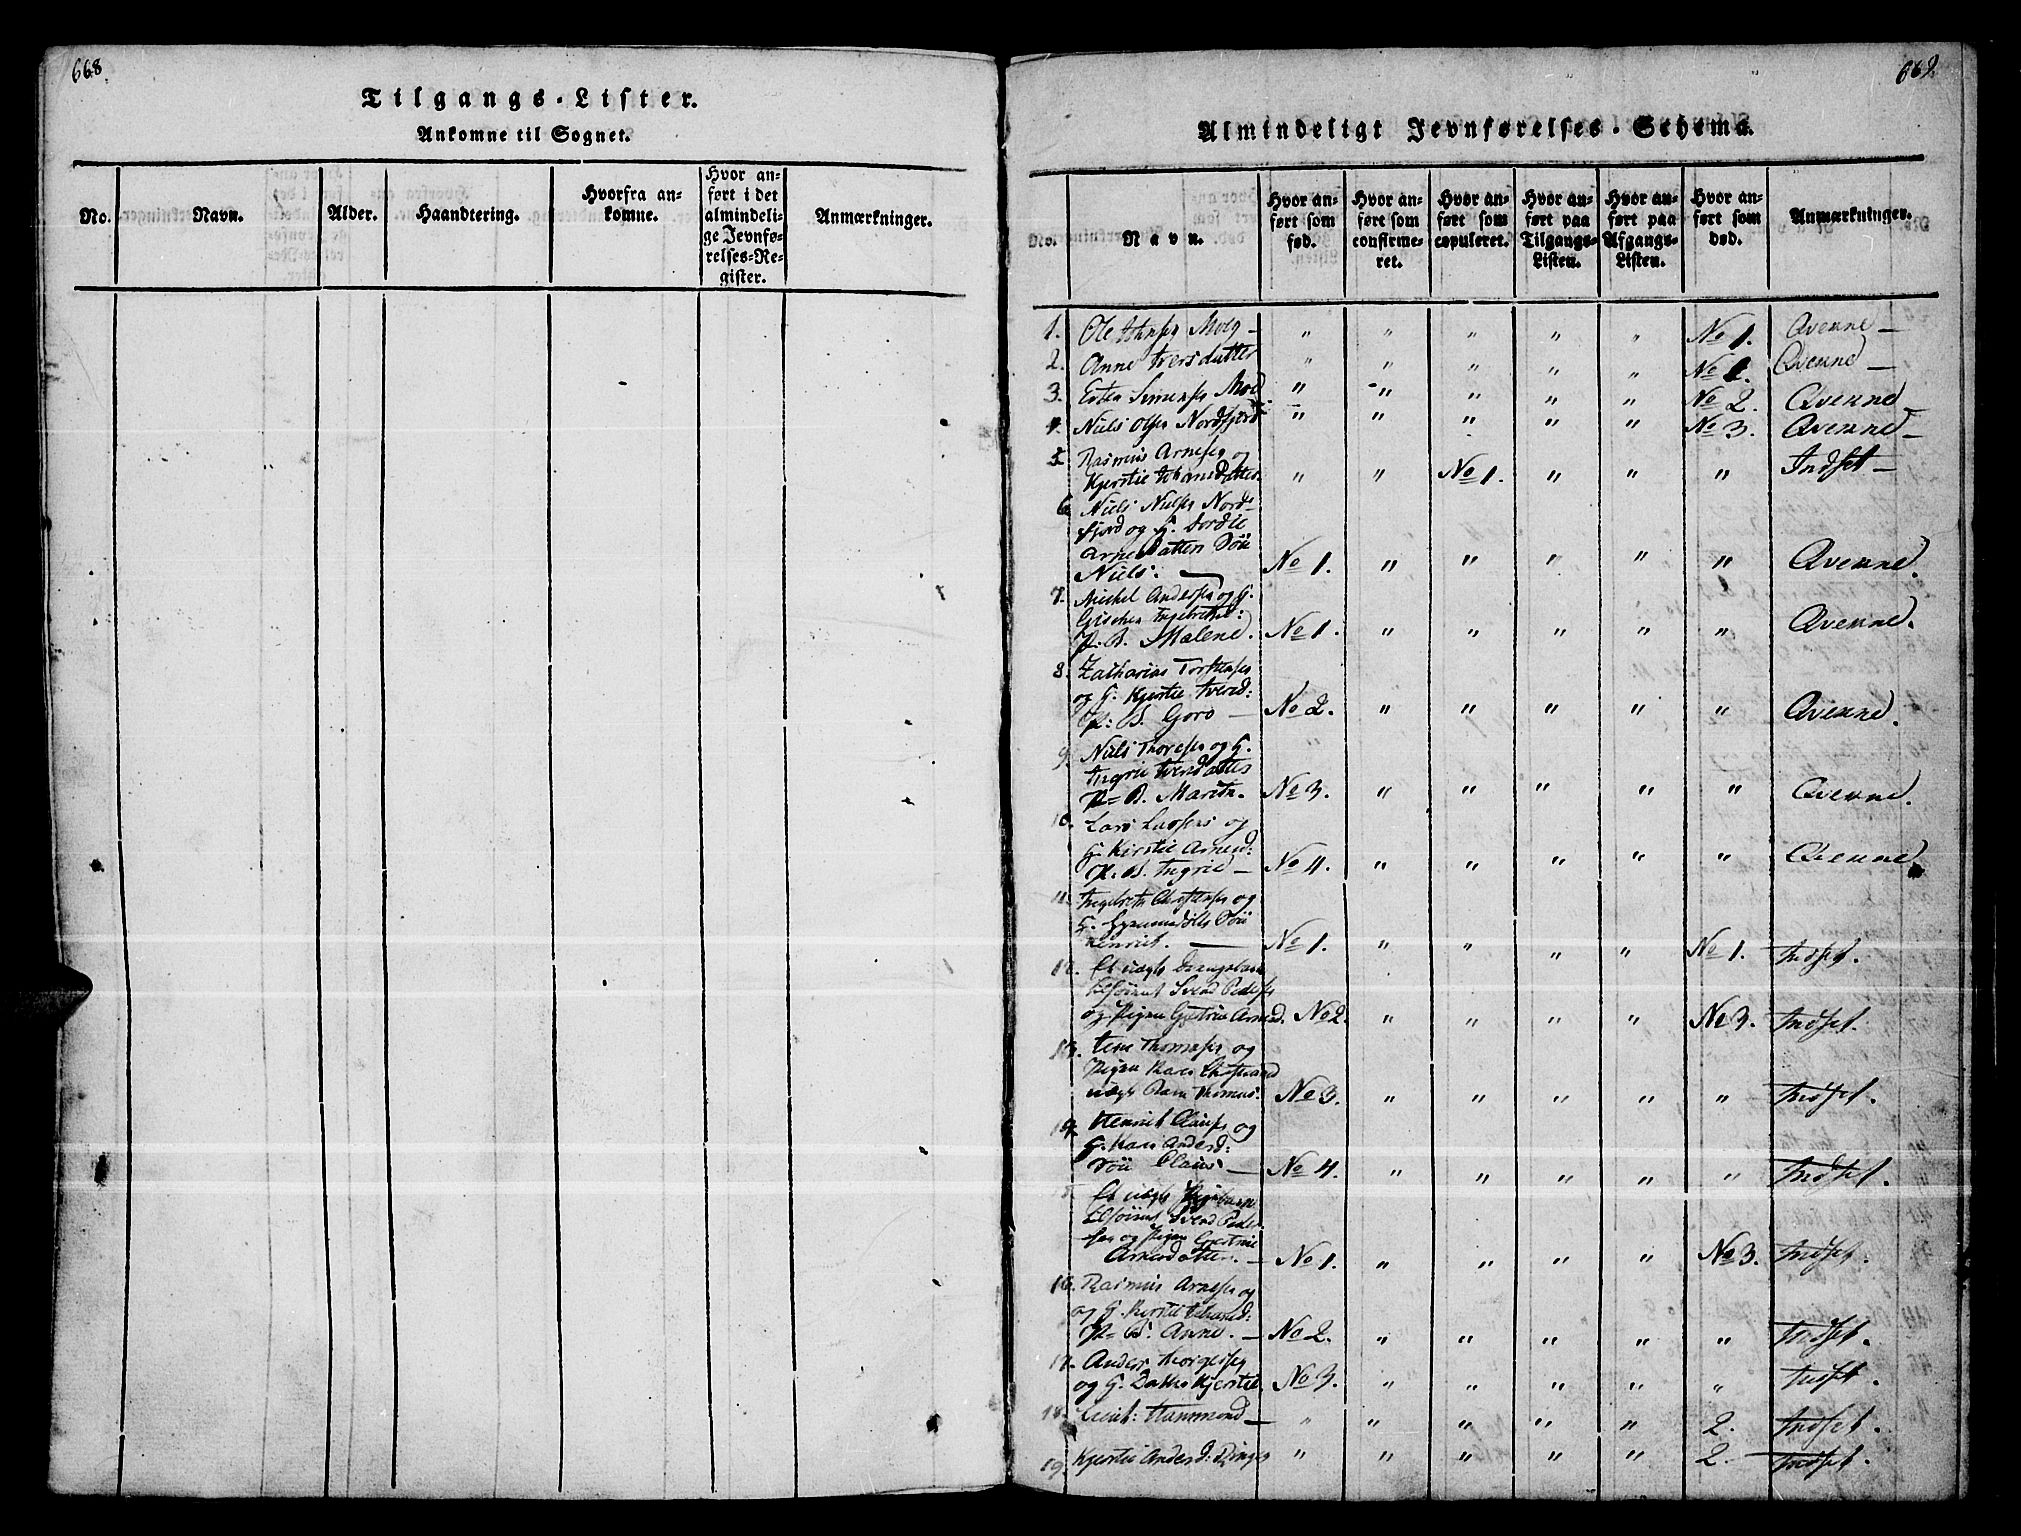 668.
Tilgangs-Lister.
Ankomne til Sognet.
No.
Navn.
Alder.
Haandtering.
Hvorfra an-
komne.
Hvor an-
ført i det
almindeli-
ge Jevnfø-
relses-Re-
gister.
Anmærkninger.
669.
Almindeligt Jevnførelses-Schema.
No.
Navn.
Hvor an-
ført som
fød.
Hvor an-
ført som
confirme-
ret.
Hvor an-
ført som
copuleret.
Hvor an-
ført paa
Tilgangs-
Listen.
Hvor an-
ført paa
Afgangs-
Listen.
Hvor an-
ført som
død.
Anmærkninger.
1. Ole " " " " " No 1. Qvenne -
2. Anne Iversdatter " " " " " Qvenne -
3. " " " " " No 2. Qvenne -
4. Niels Olsen Nordfjord " " " " " No 3. Qvenne -
5. Rasmus Arnesen og
Kjerstie " " No 1. " " " Indset -
6. Niels Nielsen Nord-
fjord og H.
Arnesdatter Søn
Niels. No 1. " " " " " Qvenne.
7. Michel Andersen og H.
P. B. Malene. No 1. " " " " " Qvenne.
8. Zacharias Torstensen
og H. Kjerstie Iversd:
P: B. Goro - No 2. " " " " " Qvenne.
9. Niels Thoresen og H.
Ingrie Iversdatter
P= B. Marith. No 3. " " " " " Qvenne.
10. Lars Larsen og
H. Kirstie Arnesd:
P. B. Ingrie - No 4. " " " " " Qvenne.
11. og
H. Søn
Henrich. - No 1. " " " " No 1. Indset.
12. Et uægte Drengebarn
Svend Peders
og Pigen Arnesd. No 2. " " " " No 3. Indset.
13. Thomasen og
Pigen Kari
uægte Barn Thomas. No 3. " " " " " Indset.
14. Henrich Clausen og
H. Kari Andersd:
Søn Claus - No 4. " " " " " Indset.
15. Et uægte Pigebarn
Svend Peder-
sen og Pigen
Arnesdatter. - No 1. " " " " No 3. Indset.
16. Rasmus Arnesen og
og H. Kjerstie
P= B. Anne. - No 2. " " " " " Indset.
17. Anders
og H. Datter Kjerstie No 3. " " " " " Indset.
18. Lieut: Hammond - " " " " " 2. Indset.
19. Kjerstie Andersd: " " " " " 2. Indset.